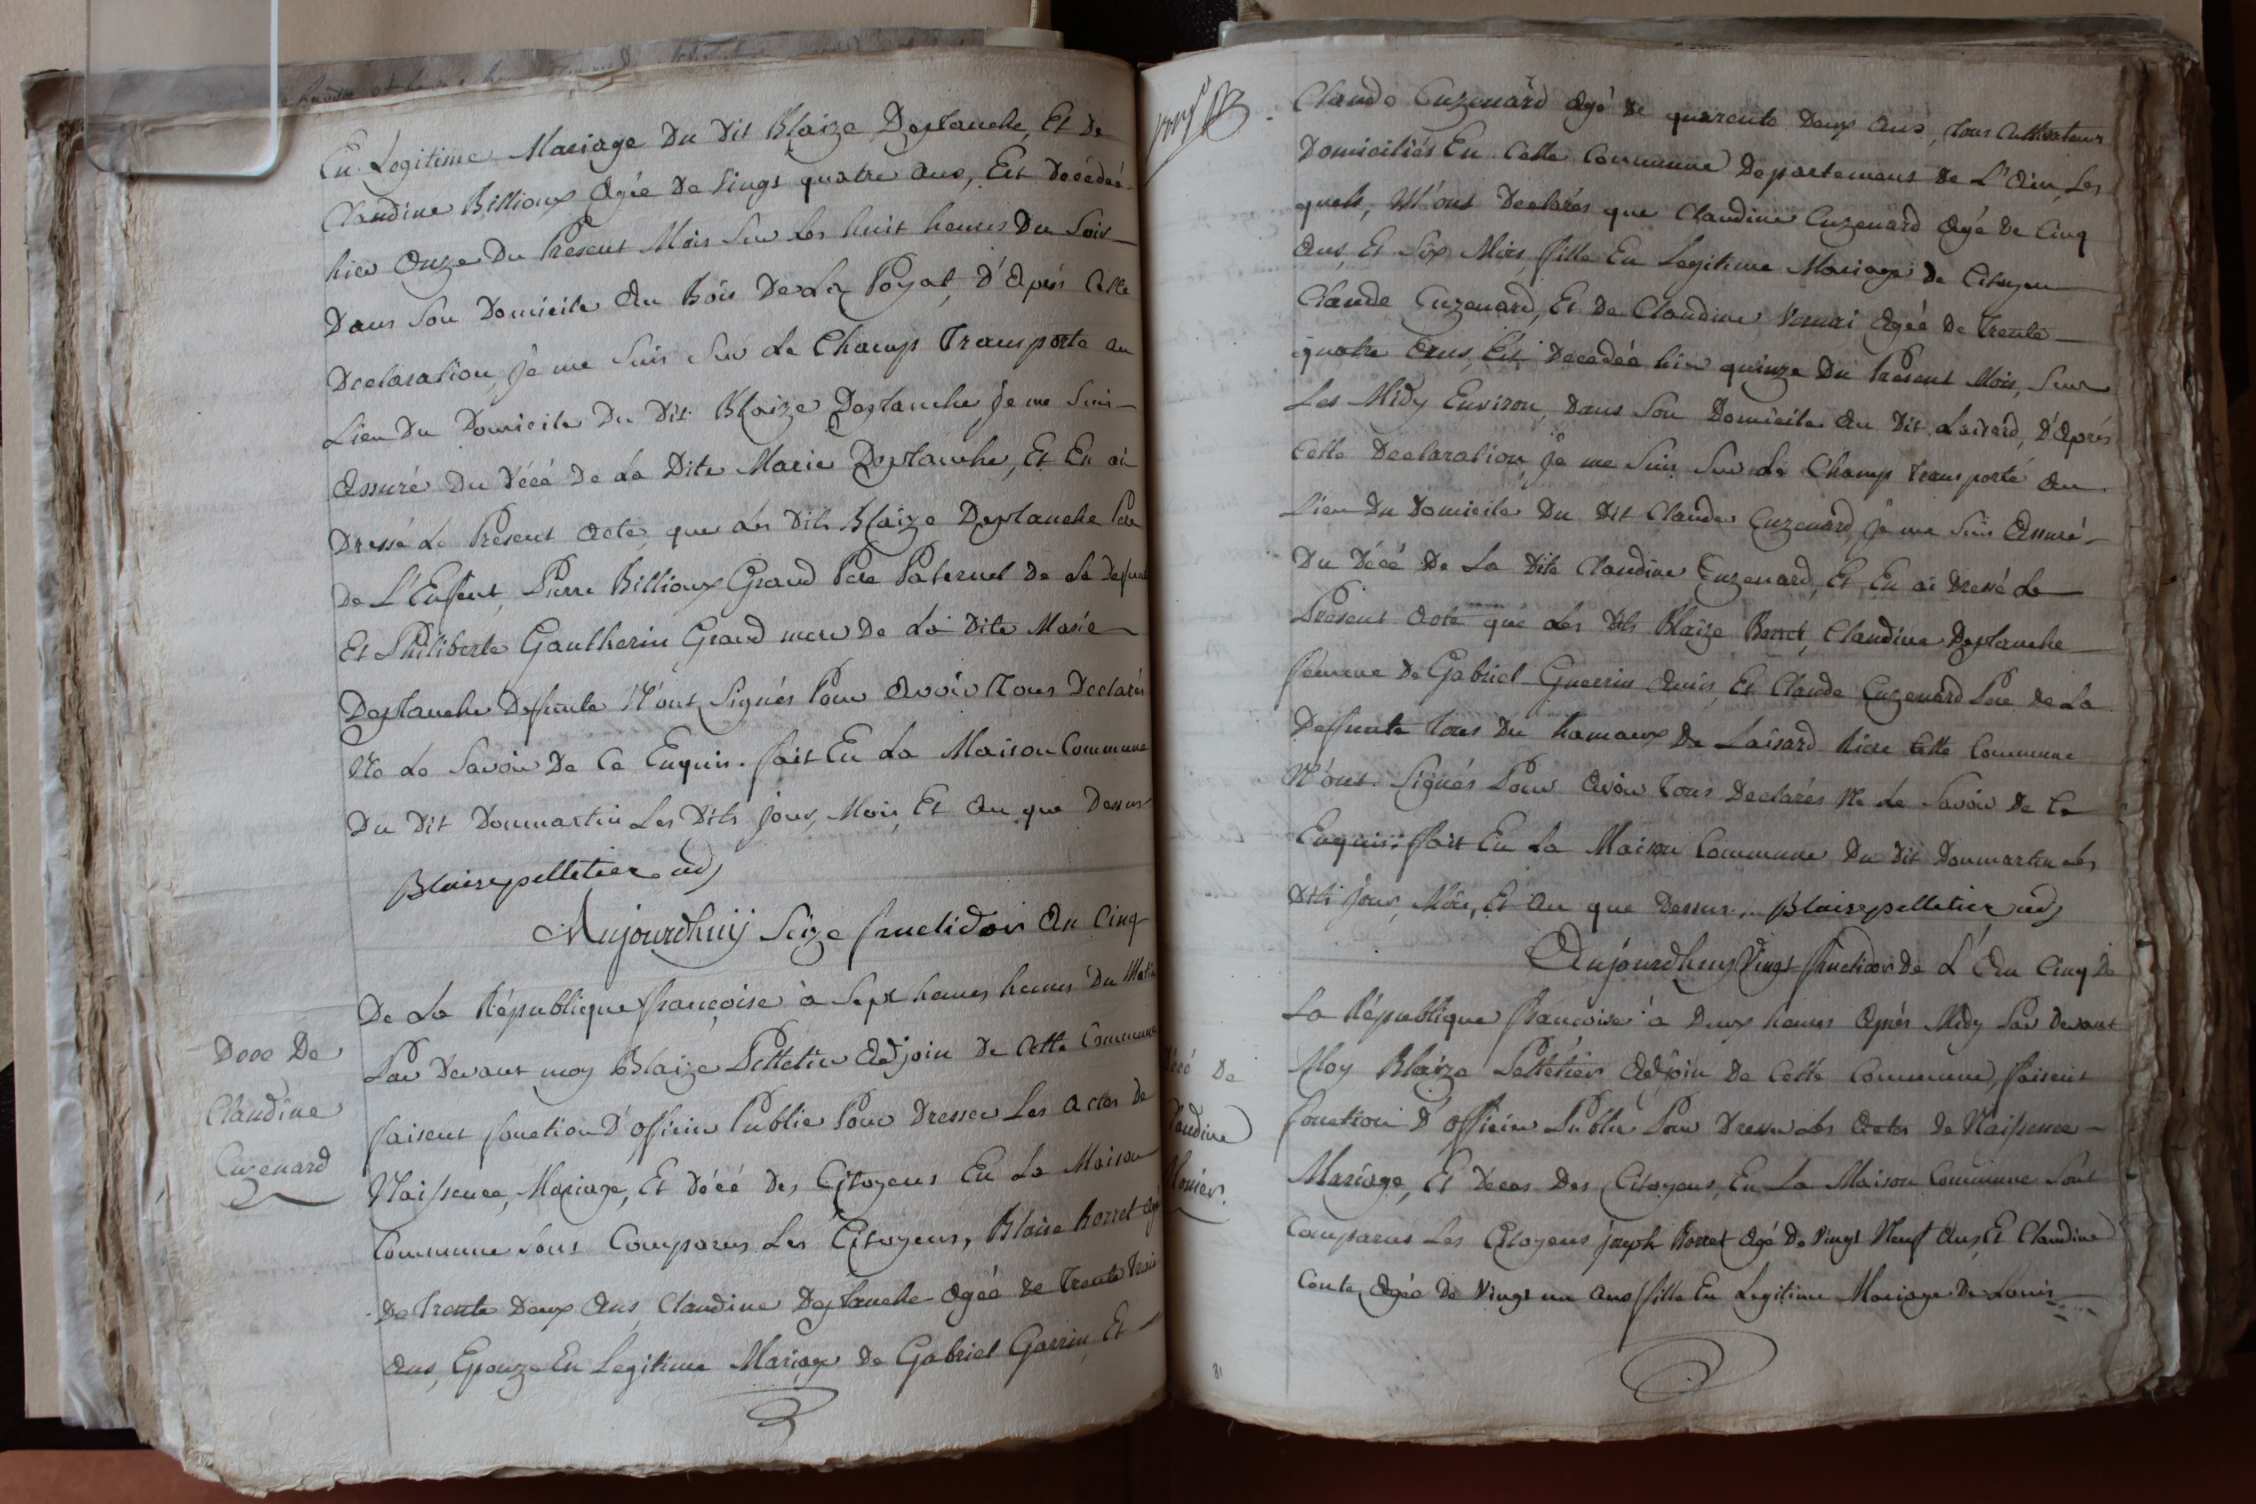 En Légitime Mariage Du Dit Blaize Deplanche, Et De
Claudine Billioux Agée De Vingt quatre Ans, Est Décédée
hier Onze Du Présent Mois Sur Les huit heures Du Soir
Dans Son Domicile Au Bois De La Poyat, D'Après Cette
Declaration, je me Suis Sur Le Champ Transporté au
Lieu Du Domicile Du Dit Blaize Deplanche je me Suis
Assuré Du Décé De La Dite Marie Deplanche, Et En ai
Dressé Le Présent Acte, que Les Dits Blaize Deplanche Pere
De L'Enfent, Pierre Billioux Grand Pere Paternel De La Defunte
Et Philiberte Gautherin Grand mere De La Dite Marie
Deplanche Defunte N'ont Signés Pour Avoir Tous Declarés
Ne Le Savoir De Ce Enquis. fait En La Maison Commune
Du Dit Dommartin Les Dits jour, Mois, Et An que Dessus
Blaise pelletier adj
Aujourdhuij Seize fructidor An Cinq
De La République françoise à Sept heures heures Du Matin
Par Devant moy Blaize Pelletier Adjoin De Cette Commune
faisent fonction D'officier Public Pour Dresser Les Actes De
Naissence, Mariage, Et Décé Des Citoyens En La Maison
Commune Sont Comparus Les Citoyens, Blaise Borret Agé
De Trente Deux Ans, Claudine Deplanche Agée De Trente Trois
Ans, Epouze En Legitime Mariage De Gabriel Garrin, Et
Dece De
Claudine
Cuzenard
Claude Cuzenard Agé De quarente Deux Ans, tous Cultivateurs
Domiciliés En Cette Commune Departement De L'Ain, Les
quels, M'ont Declarés que Claudine Cuzenard Agé De Cinq
Ans, Et Six Mois, fille En Legitime Mariage De Citoyen
Claude Cuzenard, Et De Claudine Agée De Trente
quatre Ans, Est Decedée hier quinze Du Present Mois, Sur
Les Midy Environ, Dans Son Domicile Au Dit Laisard, D'Après
Cette Declaration je me Suis Sur Le Champ Transporté Au
Lieu Du Domicile Du Dit Claude Cuzenard, je me Suis Assuré
Du Décé De La Dite Claudine Cuzenard, Et En ai Dressé Le
Présent Acte que Les Dits Blaize Borret, Claudine Deplanche
femme De Gabriel Guerrin Amis, Et Claude Cuzenard Pere de La
Defunte Tous Du hamaux De Laisard Riere Cette Commune
N'ont Signés Pour Avoir Tous Declarés Ne Le Savoir De Ce
Enquis. fait En La Maison Commune Du Dit Dommartin Les
Dits jour, Mois, Et An que Dessus. Blaise pelletier adj
Aujourdhuy Vingt fructidor De L'An Cinq De
La République francoise à Deux heures Après Midy Par Devant
Moy Blaize Pelletier Adjoin De Cette Commune, faisent
fonction D'officier Public Pour Dresser Les Actes De Naissence
Mariage, Et Deces Des Citoyens, En La Maison Commune Sont
Comparus Les Citoyens joseph Borret Agé De Vingt Neuf Ans, Et Claudine
Conte Agée De Vingt un Ans fille En Legitime Mariage De Louis
Décé De
Claudine
Monier